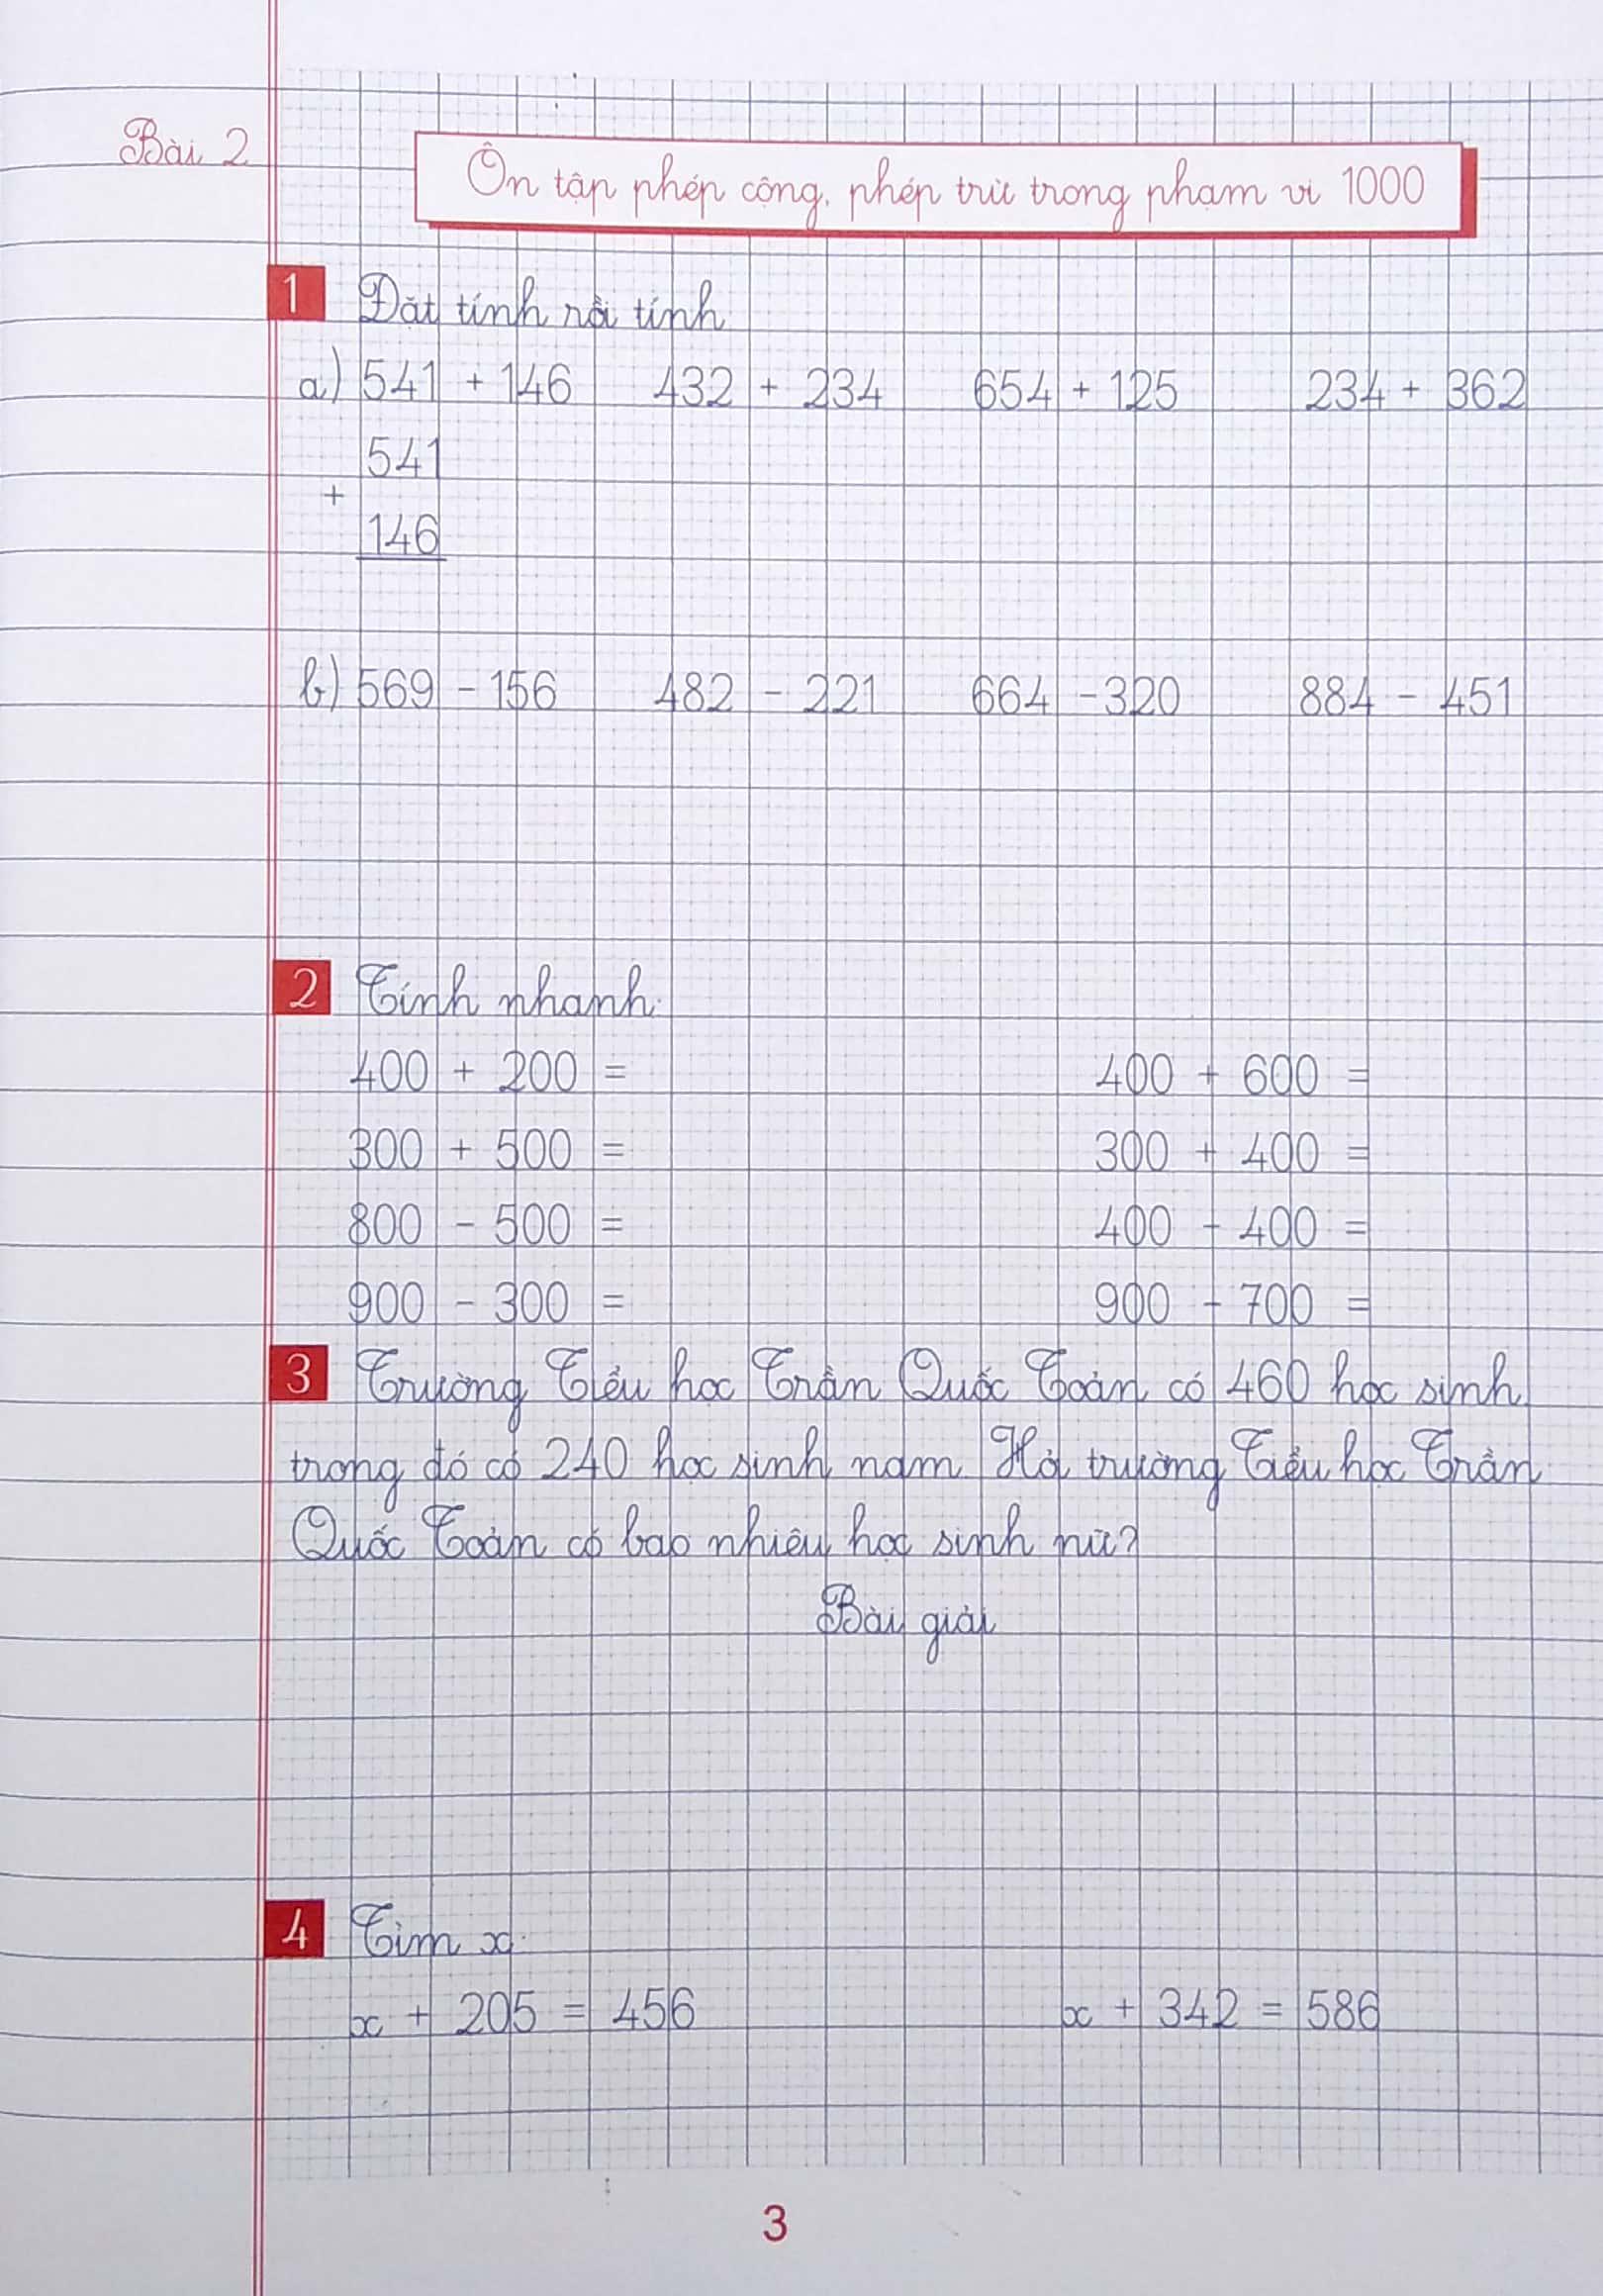 Bài 2
Ôn tập phép cộng, phép trừ trong phạm vi 1000
1 Đặt tính rồi tính
a) 541 + 146 432 + 234 654 + 125 234 + 362
541
+
146
b) 569 - 156 482 - 221 664 - 320 884 - 451
2 Tính nhanh:
400 + 200 = 400 + 600 =
300 + 500 = 300 + 400 =
800 - 500 = 400 - 400 =
900 - 300 = 900 - 700 =
3 Trường Tiểu học Trần Quốc Toản có 460 học sinh,
trong đó có 240 học sinh nam. Hỏi trường Tiểu học Trần
Quốc Toản có bao nhiêu học sinh nữ?
Bài giải
4 Tìm x:
x + 205 = 456 x + 342 = 586
3